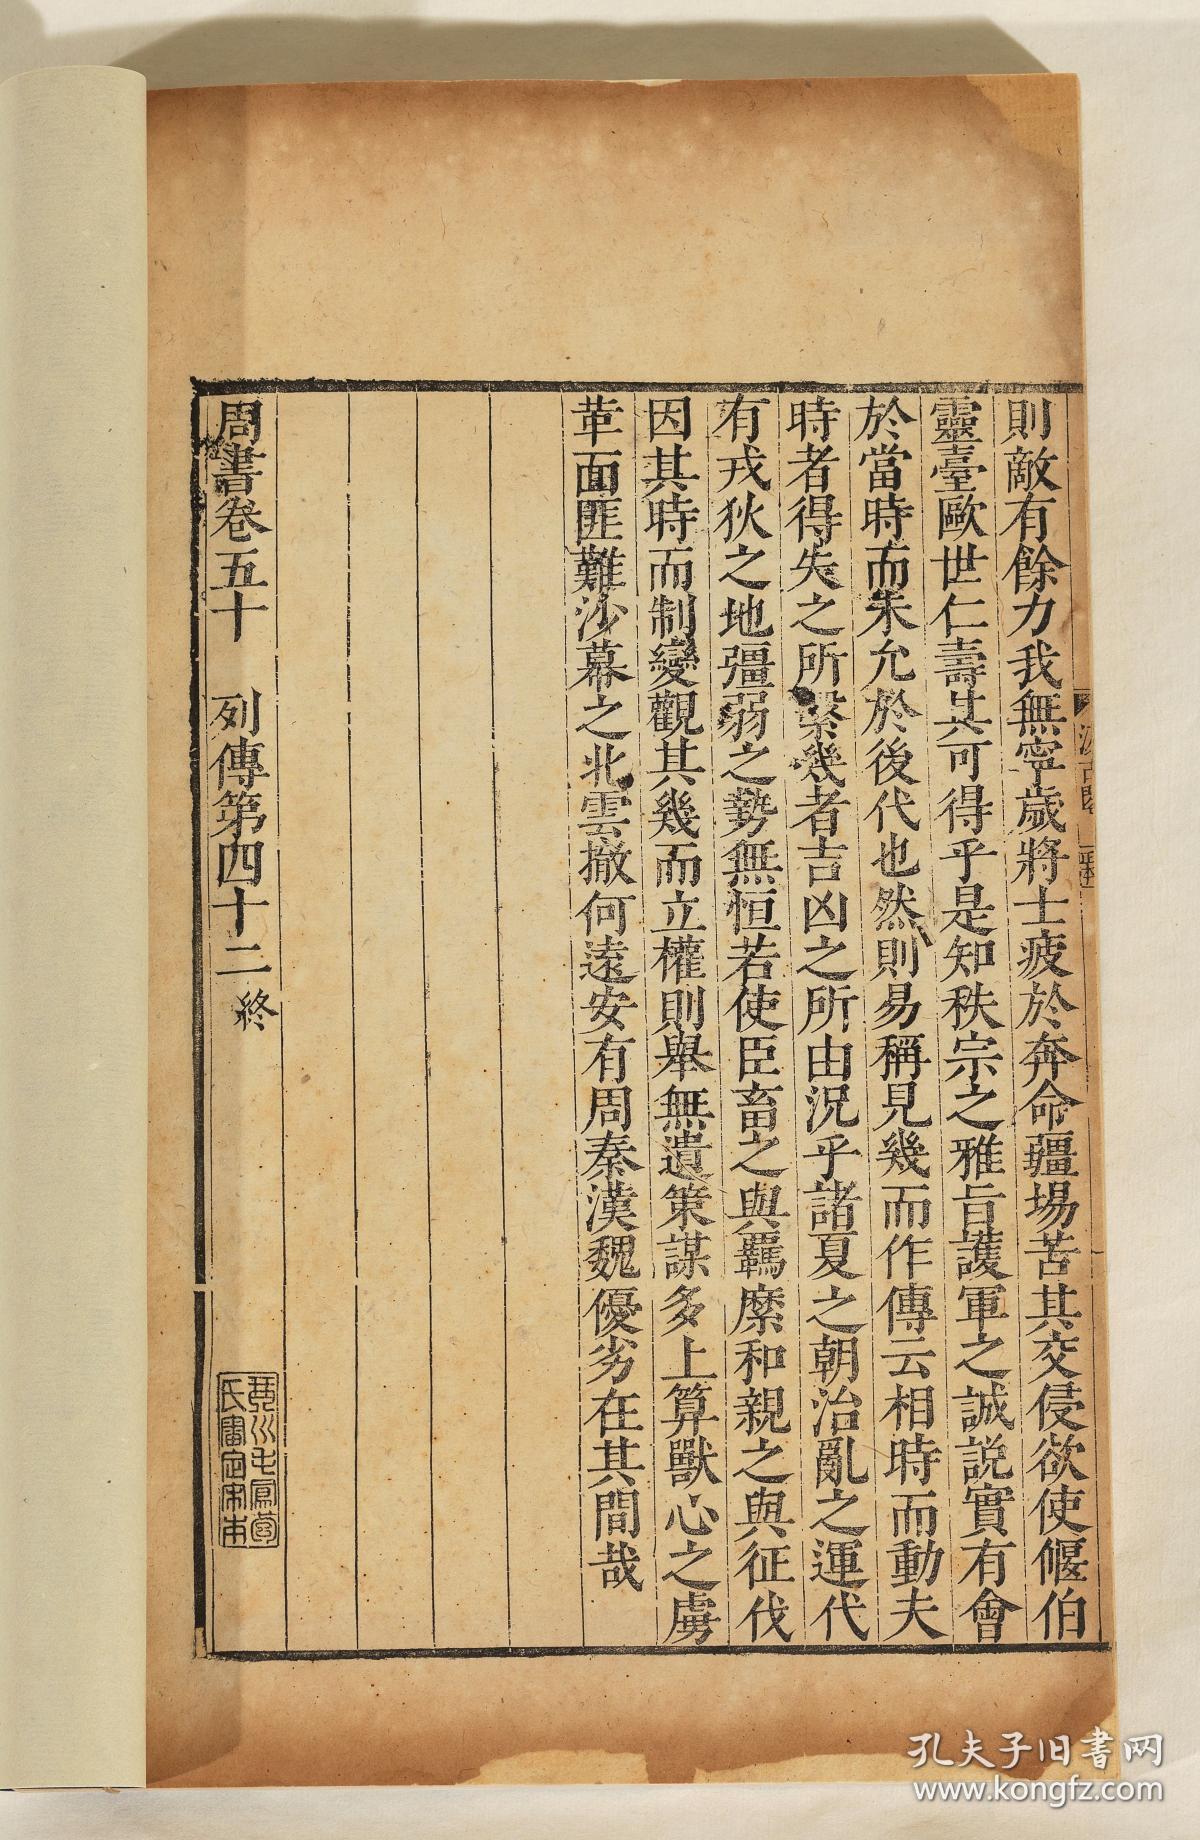 則敵有餘力我無寧歲將士疲於奔命疆場苦其交侵欲使偃伯
靈臺歐世仁壽其可得乎是知秩宗之雅旨護軍之誠說實有會
於當時而未允於後代也然則易稱見幾而作傳云相時而動夫
時者得失之所繫幾者吉凶之所由況乎諸夏之朝治亂之運代
有戎狄之地彊弱之勢無恒若使臣畜之與羈縻和親之與征伐
因其時而制變觀其幾而立權則舉無遺策謀多上算獸心之虜
革面匪難沙幕之北雲撤何遠安有周秦漢魏優劣在其間哉
周書卷五十 列傳第四十二 終
琴川毛鳳苞
氏審定宋本
孔夫子旧書网
www.kongfz.com